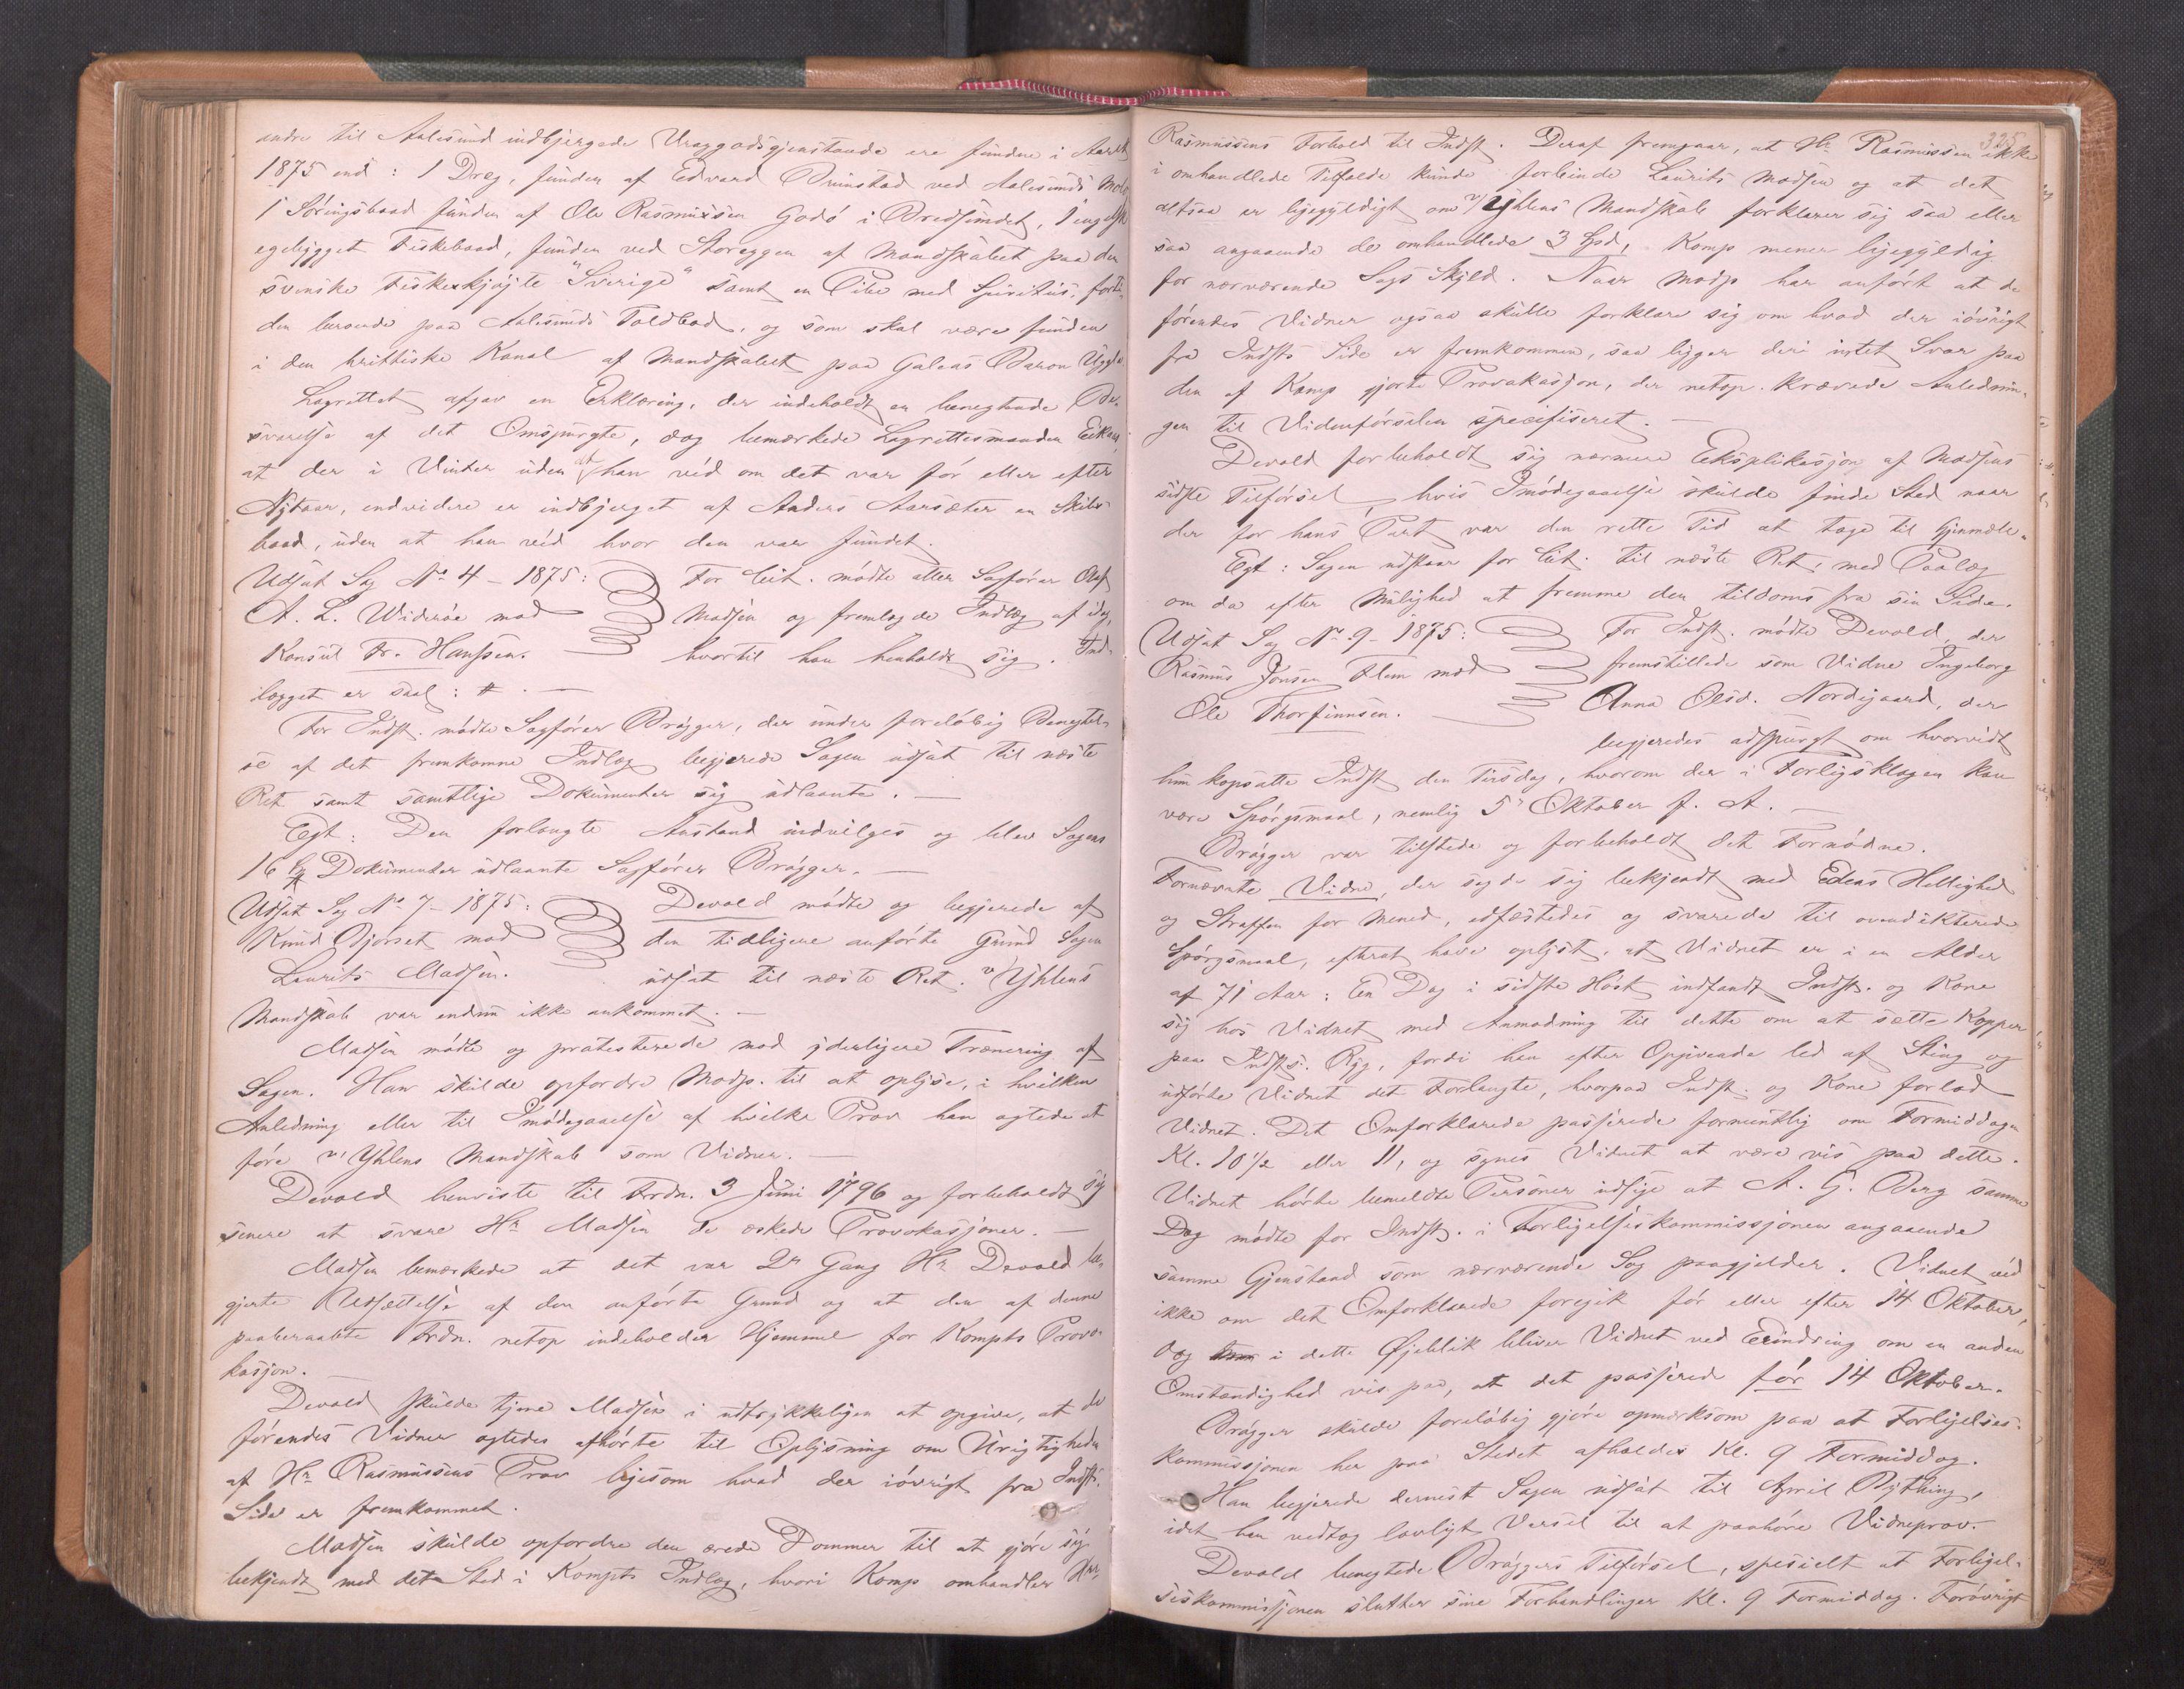 andre til Aalesund indbjergede Vraggodsgjenstande ere fundne i Aaret
1875 end: 1 Dreg, funden af Edvard Brunstad ved Aalesunds Molo
1 Söringsbaad funden af Ole Rasmussen Godö i Bredsundet, 1 engelsk
egebygget Fiskebaad, funden ved Storeggen af Mandskabet paa den
svenske Fiskeskjöjte "Sverige" samt en Pibe med Spiritus, forti-
den beroende paa Aalesunds Toldbod, og som skal være funden
i den brittiske Kanal af Mandskabet paa Galeas Baron Uggla.
Lagrettet afgav en Erklæring, der indeholdt en benegtende Be-
svarelse af det Omspurgte, dog bemærkede Lagrettesmanden
at der i Vinter uden at han véd om det var för eller efter
Nytaar, endvidere er indbjerget af Anders Aarsæter en Skibs-
baad, uden at han véd hvor den var fundet.
Udsat Sag No 4 - 1875: For Cit. mödte atter Sagförer Olaf
A. L. Wideröe mod Madsen og fremlagde Indlæg af idag,
Konsul Fr. Hanssen. hvortil han henholdt sig. Ind-
lægget er saal: # . —
For Indst. mödte Sagförer Brögger, der under foreløbig Benegtel-
se af det fremkomne Indlæg begjerede Sagen udsat til næste
Ret samt samtlige Dokumenter sig udlaante. —
Egt: Den forlangte Anstand indvilges og blev Sagens
16 Dokumenter udlaante Sagförer Brögger. —
Udsat Sag No 7 - 1875: Devold mödte og begjerede af
Knud Bjørset mod den tidligere anförte Grund Sagen
Laurits Madsen. udsat til næste Ret. v/ Yhlens
Mandskab var endnu ikke ankommet. —
Madsen mödte og protesterede mod yderligere Trænering af
Sagen. Han skulde opfordre Modp. til at oplyse, i hvilken
Anledning eller til Imödegaaelse af hvilke Prov han agtede at
före v/ Yhlens Mandskab som Vidner. —
Devold henviste til Frdn. 3 Juni 1796 og forbeholdt sig
senere at svare Hr Madsen de æskede Provokasjoner. —
Madsen bemærkede at det var 2n Gang Hr Devold be-
gjerte Udsættelse af den anförte Grund og at den af denne
paaberaabte Frdn. netop indeholder Hjemmel for Kompts Provo-
kasjon. —
Devold skulde tjene Madsen i udtrykkeligen at opgive, at de
förendes Vidner agtedes afhörte til Oplysning om Urigtigheden
af Hr Rasmussens Prov ligesom hvad der iövrigt fra Indsts
Side er fremkommet.
Madsen skulde opfordre den ærede Dommer til at gjöre sig
bekjendt med det Sted i Kompts Indlæg, hvori Komp omhandler Hr.
325
Rasmussens Forhold til Indst. Deraf fremgaar, at Hr Rasmussen ikke
i omhandlede Tilfælde kunde forbinde Laurits Madsen og at det
altsaa er ligegyldigt om v/ Yhlens Mandskab forklarer sig saa eller
saa angaaende de omhandlede 3 Spd, Komp mener ligegyldig
for nærværende Sags Skyld. Naar Modp har anfört at de
förendes Vidner ogsaa skulle forklare sig om hvad der iövrigt
fra Indsts Side er fremkommen, saa ligger deri intet Svar paa
den af Komp gjorte Provokasjon, der netop krævede Anlednin-
gen til Vidneförselen specifiseret. —
Devold forbeholdt sig nærmere Eksplikasjon af Madsens
sidste Tilförsel, hvis Imödegaaelse skulde finde Sted naar
der for hans Part var den rette Tid at tage til Gjenmæle.
Egt: Sagen udstaar for Cit. til næste Ret, med Paalæg
om da efter Mulighed at fremme den tildoms fra sin Side.
Udsat Sag No 9 - 1875: For Indst. mödte Devold, der
Rasmus Jonsen Flem mod fremstillede som Vidne Ingeborg
Ole Thorfinnsen. Anna Olsd. Nordigaard, der
begjeredes adspurgt om hvorvidt
hun kopsatte Indst den Tirsdag, hvorom der i Forligsklagen kan
være Spörgsmaal, nemlig 5t Oktober f. A. —
Brögger var tilstede og forbeholdt det Fornödne.
Fornævnte Vidne, der sagde sig bekjendt med Edens Hellighed
og Straffen for Mened, edfæstedes og svarede til ovendikterede
Spörgsmaal, efterat have oplyst, at Vidnet er i en Alder
af 71 Aar: En Dag i sidste Höst indfandt Indst. og Kone
sig hos Vidnet med Anmodning til dette om at sætte Kopper
paa Indsts. Ryg, fordi han efter Opgivende led af Sting og
udförte Vidnet det Forlangte, hvorpaa Indst. og Kone forlod
Vidnet. Det Omforklarede passerede formentlig om Formiddagen
Kl. 10 1/2 eller 11, og synes Vidnet at være vis paa dette.
Vidnet hörte bemeldte Personer udsige at A. G. Berg samme
Dag mödte for Indst. i Forligelseskommissjonen angaaende
samme Gjenstand som nærværende Sag paagjelder. Vidnet véd
ikke om det Omforklarede foregik för eller efter 14 Oktober,
og i dette Øjeblik bliver Vidnet ved Erindring om en anden
Omstændighed vis paa, at det passerede för 14 Oktober.
Brögger skulde foreløbig gjöre opmærksom paa at Forligelses-
kommissjonen her paa Stedet afholdes Kl. 9 Formiddag.
Han begjerede dernest Sagen udsat til April Bything,
idet han vedtog lovligt Varsel til at paahöre Vidneprov.
Devold benegtede Bröggers Tilförsel, specielt at Forligel-
seskommissjonen slutter sine Forhandlinger Kl. 9 Formiddag. Forövrigt